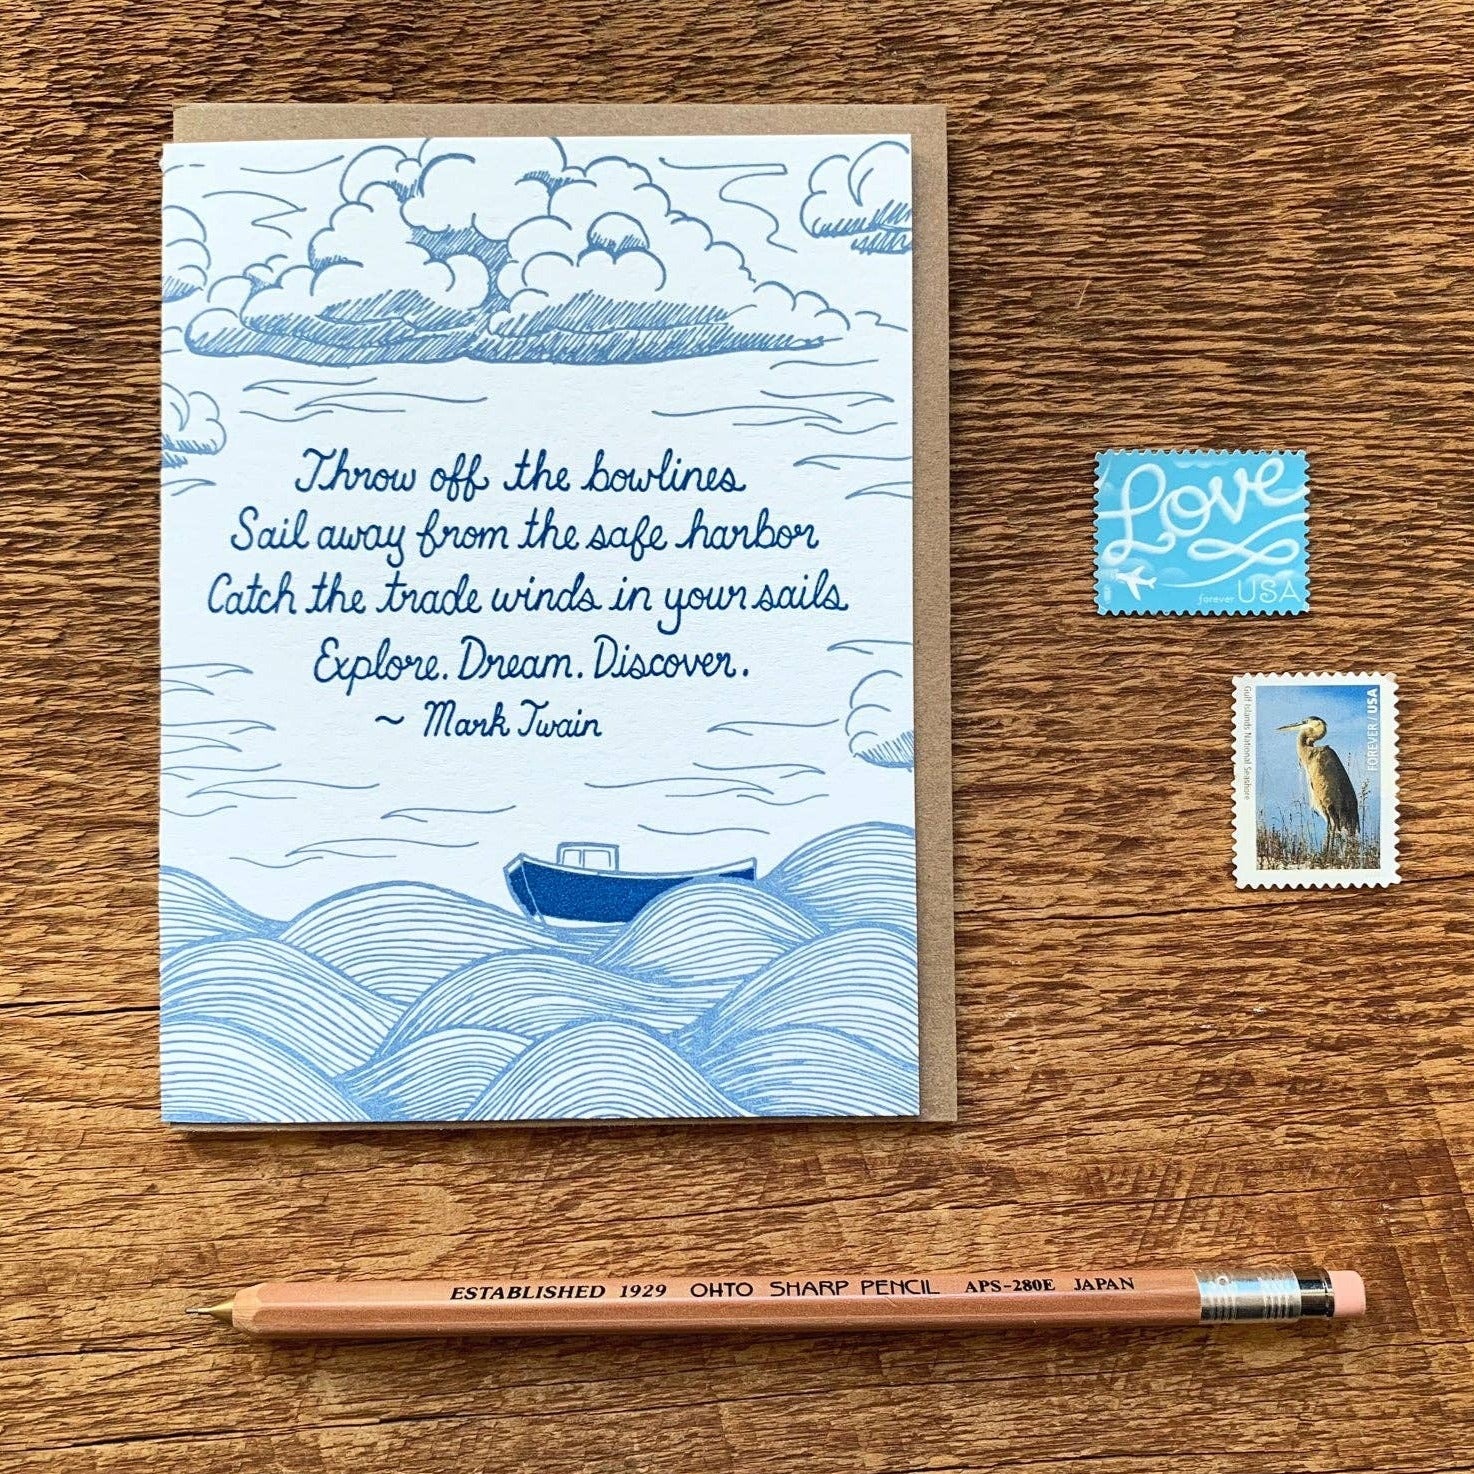 Throw off the bowlines
Sail away from the safe harbor
Catch the trade winds in your sails
Explore. Dream. Discover.
~ Mark Twain
Love
forever USA
Gulf Islands National Seashore
FOREVER / USA
ESTABLISHED 1929 OHTO SHARP PENCIL APS-280E JAPAN